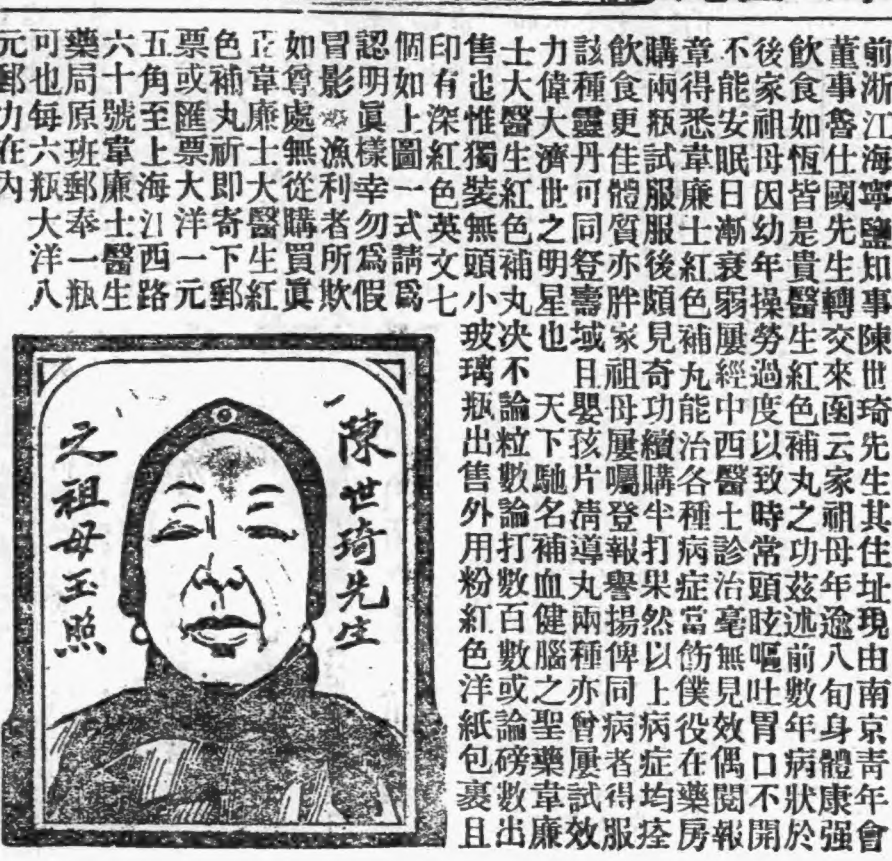 前浙江海寧鹽知事陳世琦先生其住址現由南京靑年會
董事魯仕國先生轉交來函云家祖母年逾八旬身體康强
飲食如恆皆是貴醫生紅色補丸之功茲述前數年病狀於
後家祖母因幼年操勞過度以致時常頭眩嘔吐胃口不開
不能安眠日漸衰弱屢經中西醫士診治毫無見效偶閱報
章得悉韋廉士紅色補丸能治各種病症當飭僕役在藥房
購兩瓶試服服後頗見奇功續購半打果然以上病症均痊
飲食更佳體質亦胖家祖母屢囑登報譽揚俾同病者得服
該種靈丹可同登壽域且嬰孩片淸導丸兩種亦曾屢試效
力偉大濟世之明星也 天下馳名補血健腦之聖藥韋廉
士大醫生紅色補丸决不論粒數論打數百數或論磅數出
售也惟獨裝無頭小玻璃瓶出售外用粉紅色洋紙包裹且
印有深紅色英文七
個如上圖一式請爲
認明眞樣幸勿爲假
冒影漁利者所欺
如尊處無從購買眞
正韋廉士大醫生紅
色補丸祈即寄下郵
票或匯票大洋一元
五角至上海江西路
六十號韋廉士醫生
藥局原班郵奉一瓶
可也每六瓶大洋八
元郵力在內
陳世琦先生
之祖母玉照